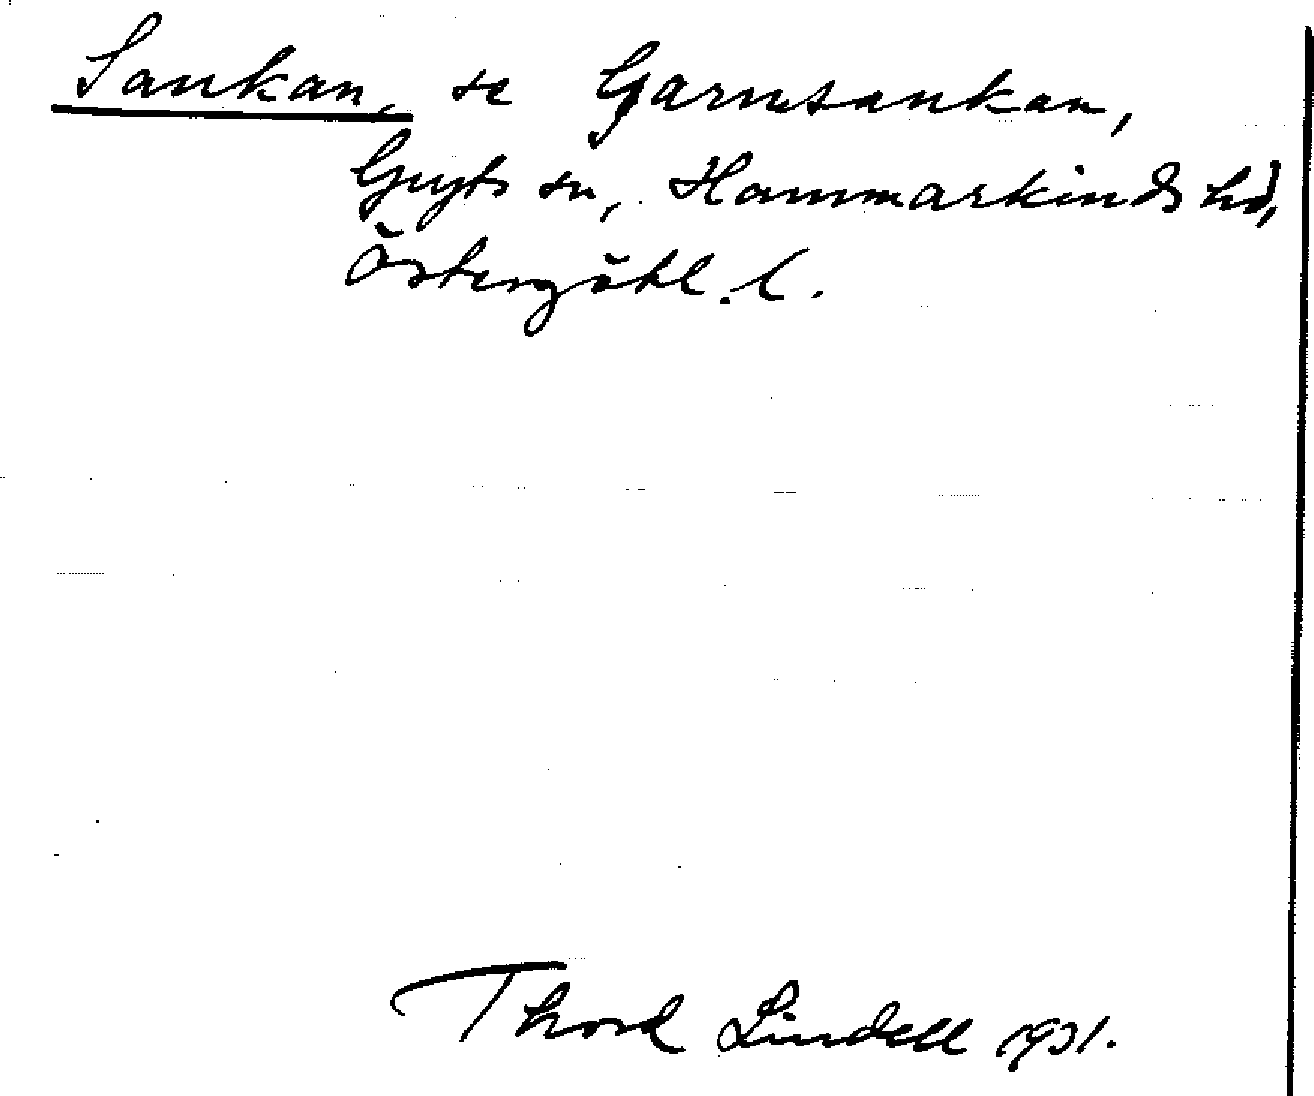 Sankan, se Garnsankan,
Gryts sn, Hammarkinds hd,
Östergötl. l.
Thord Lindell 1931.